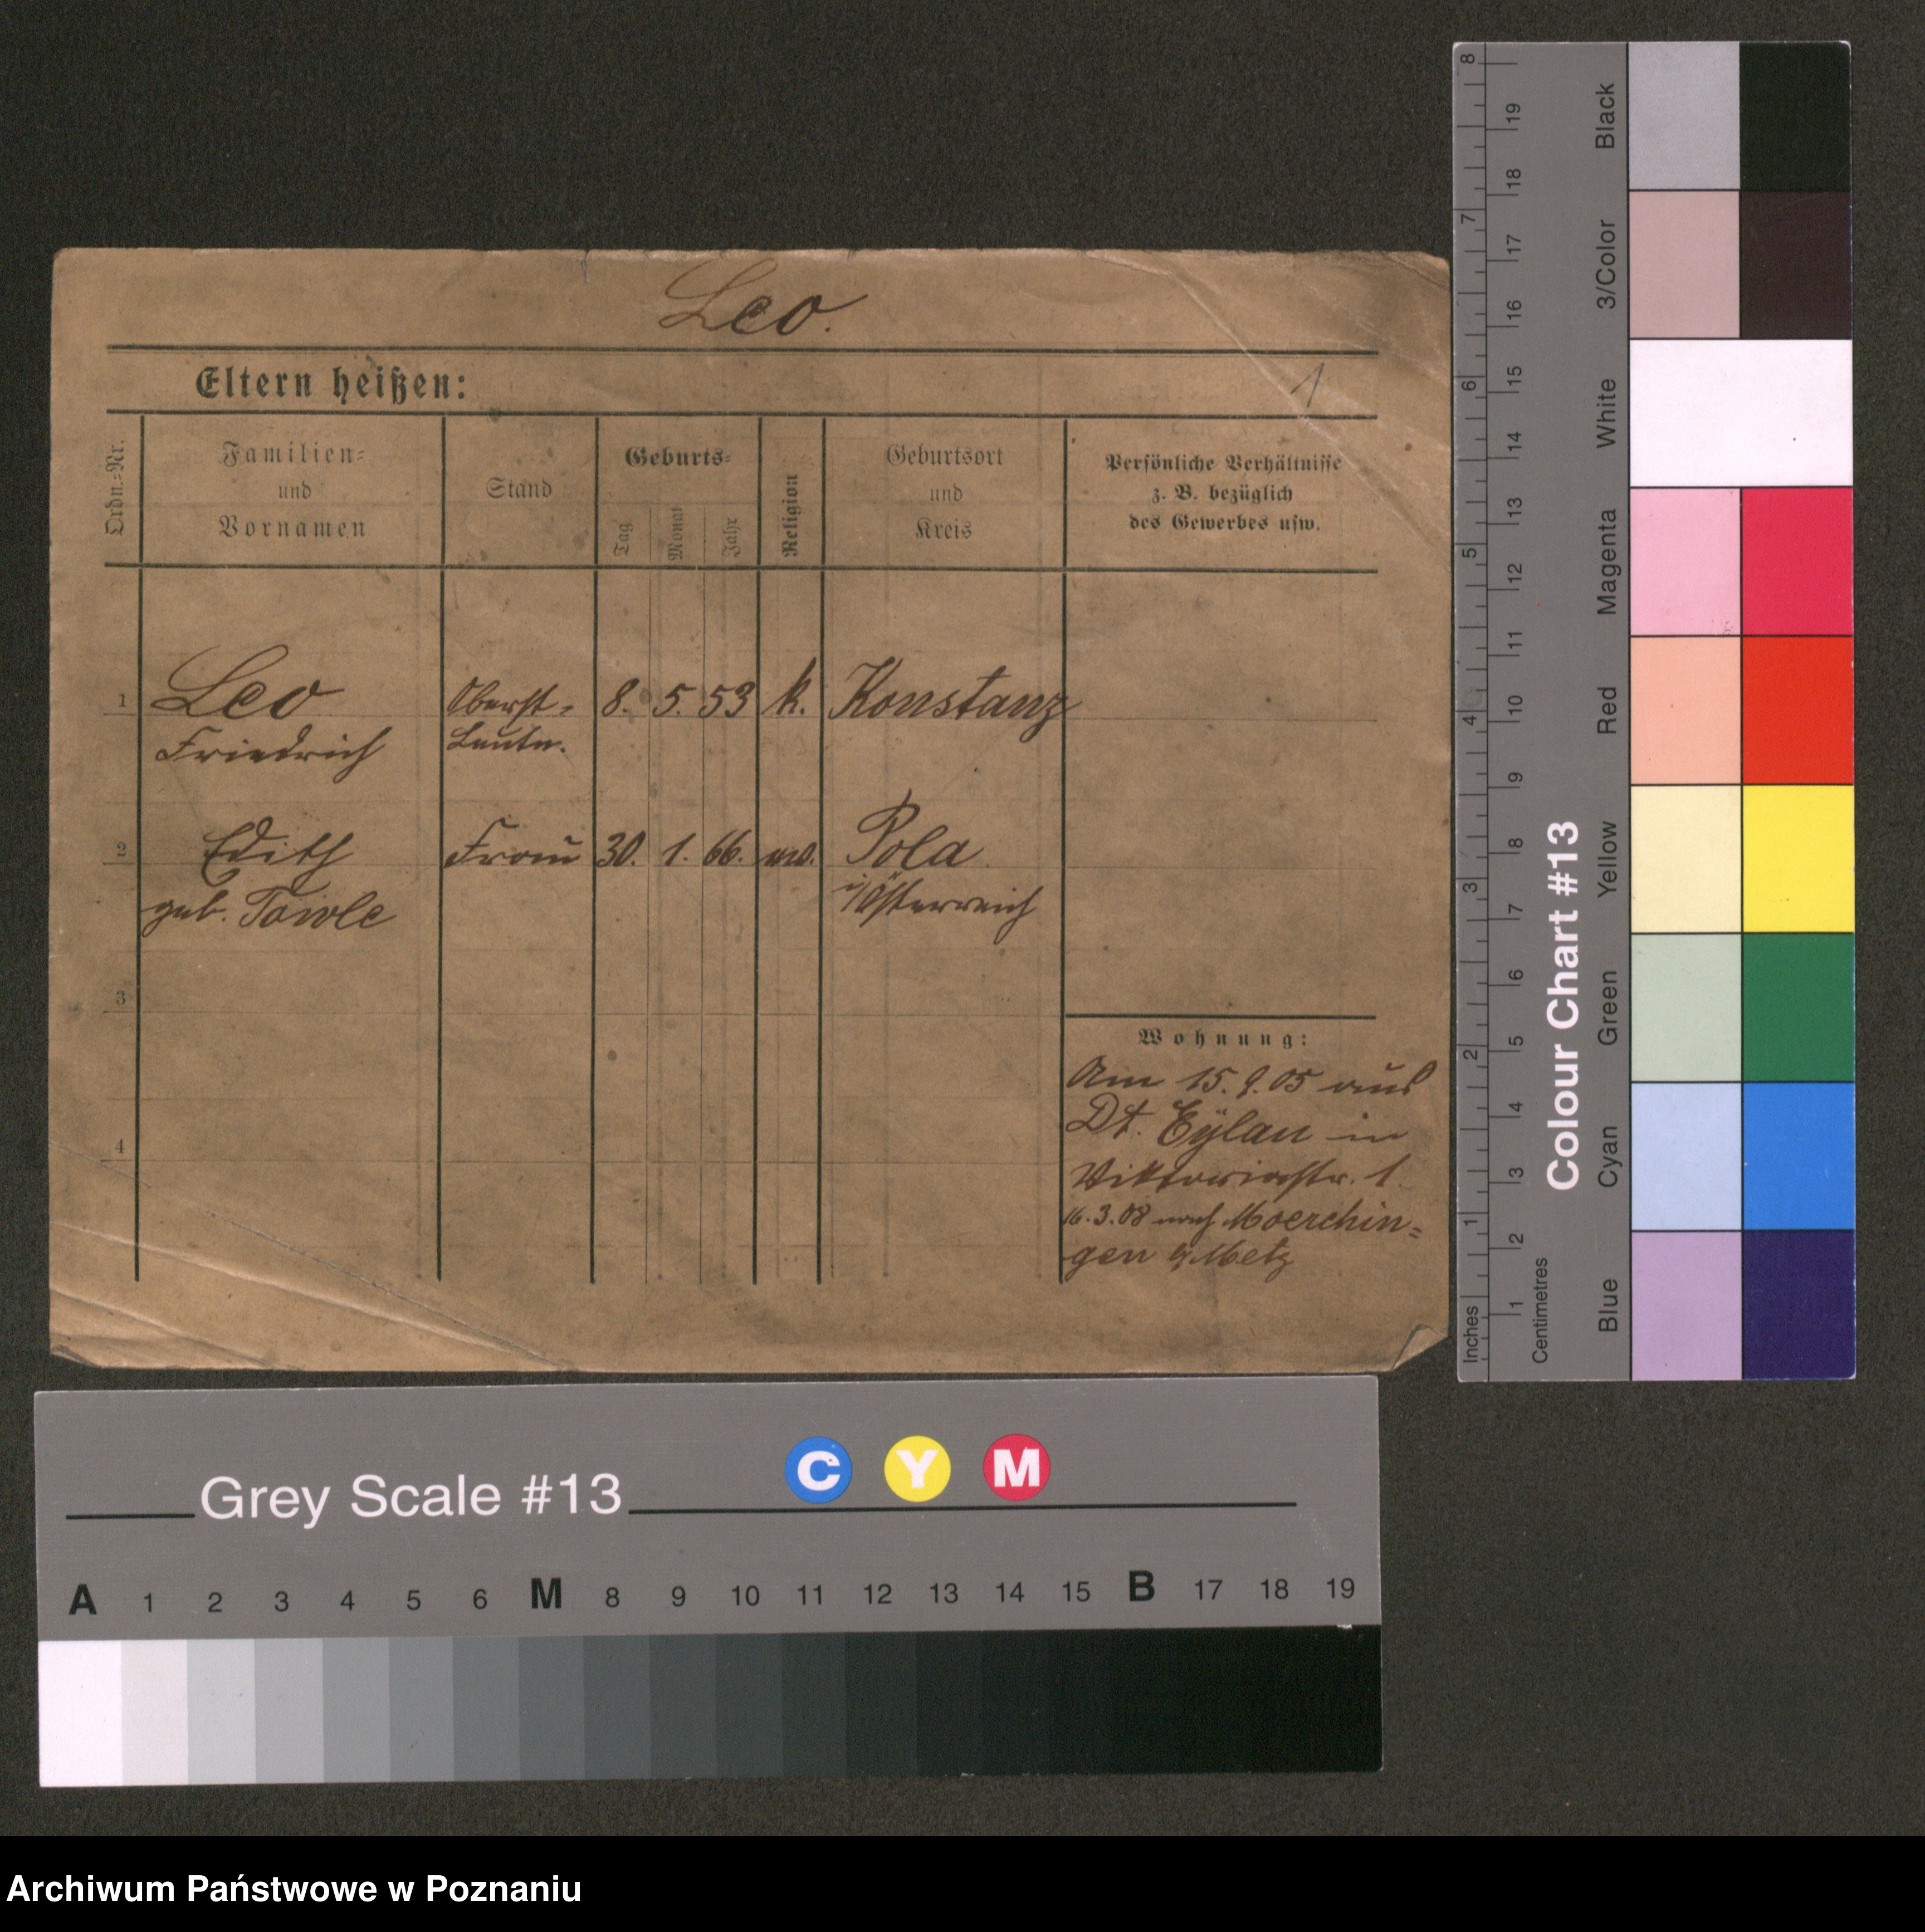 Leo.
Eltern heißen:
1
Ordn.-Nr.
Familien-
und
Vornamen
Stand
Geburts-
Tag
Monat
Jahr
Religion
Geburtsort
und
Kreis
Persönliche Verhältnisse
z. B. bezüglich
des Gewerbes usw.
1 Leo Oberst- 8. 5. 53 k. Konstanz
Friedrich Leutn.
2 Edith Frau 30. 1. 66. Pola
geb. Towle i/Österreich
3
Wohnung:
Am 15. 9. 05 aus
Dt. Eylau in
4
Viktoriastr. 1
16. 3. 08 nach Moerchin=
gen b/Metz
8 19 18 7 17 16 6 15 14 13 5 12 11 4 10 9 8 3 7 6 2 5 4 3 1 2 1
Inches
Centimetres
Colour Chart #13
Black
3/Color
White
Magenta
Red
Yellow
Green
Cyan
Blue
Grey Scale #13
C Y M
A 1 2 3 4 5 6 M 8 9 10 11 12 13 14 15 B 17 18 19
Archiwum Państwowe w Poznaniu